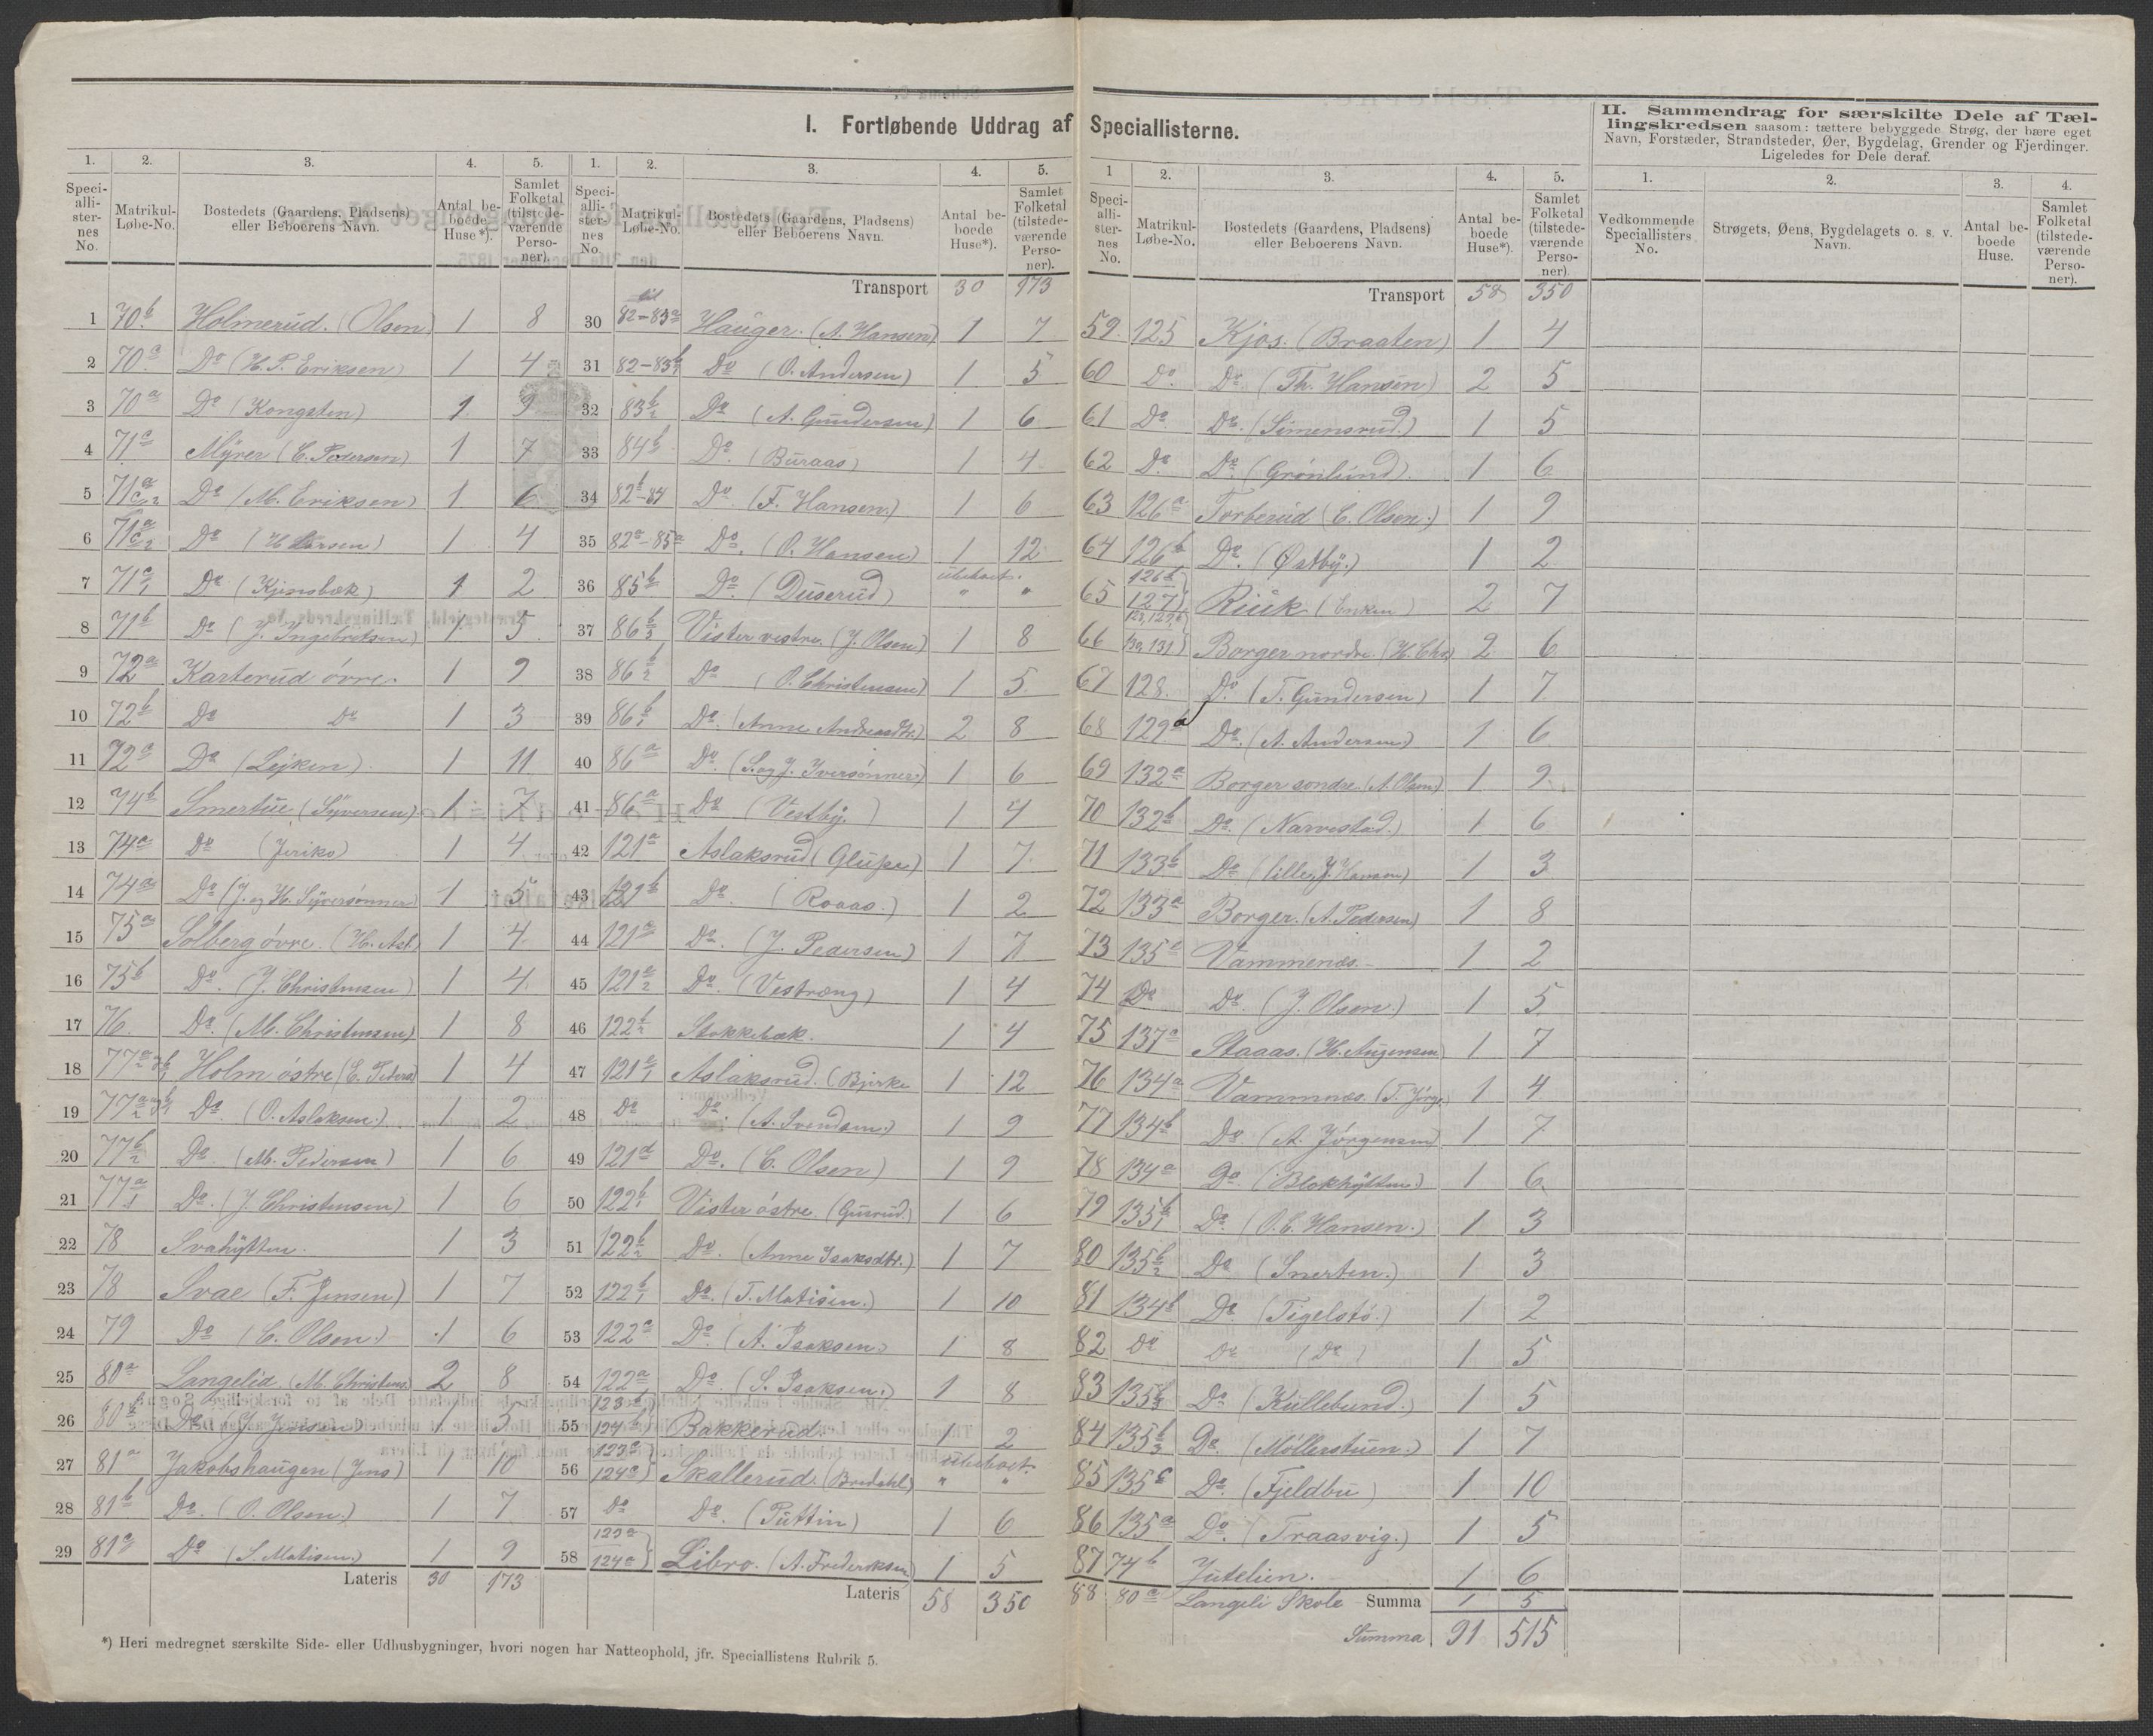 I. Fortløbende Uddrag af Speciallisterne.
II. Sammendrag for særskilte Dele af Tæl-
lingskredsen saasom: tættere bebyggede Strøg, der bære eget
Navn, Forstæder, Strandsteder, Øer, Bygdelag, Grender og Fjerdinger.
Ligeledes for Dele deraf.
1. 2. 3. 4. 5.
Speci-alli-ster-nes No. Matrikul-Løbe-No. Bostedets (Gaardens, Pladsens) eller Beboerens Navn. Antal be-boede Huse*). Samlet Folketal (tilstede-værende Perso-ner).
1 70b Holmerud. (Olsen) 1 8
2 70a Do (H. P. Eriksen) 1 4
3 70a Do (Kongsten) 1 9
4 71c Myrer (C. Pedersen) 1 7
5 71 Do (M. Eriksen) 1 6
6 71 Do (H Larsen) 1 4
7 71 Do (Kjensbæk) 1 2
8 71b Do (J. Ingebritsen) 1 5
9 72a Karterud óvre. 1 9
10 72b Do Do 1 3
11 72a Do (Lejken) 1 11
12 74b Smertue (Syversen) 1 7
13 74a Do (Jeriko) 1 4
14 74a Do (J. og H. Syversónner) 1 5
15 75a Solberg óvre. (H. Asl.) 1 4
16 75b Do. (J. Christensen) 1 4
17 76 Do. (M. Christensen) 1 8
18 77 Holm óstre (E. Peders) 1 4
19 77 Do. (O. Aslaksen.) 1 2
20 77b2 Do. (M. Pedersen) 1 6
21 77a1 Do. (J. Christensen) 1 6
22 78 Svahytten. 1 3
23 78 Svae (F. Jensen) 1 7
24 79 Do (C. Olsen.) 1 6
25 80a Langelid. (M. Christens) 2 8
26 80b Do (J. Jensen) 1 5
27 81a Jakobshaugen (Jens) 1 10
28 81b Do. (O. Olsen.) 1 7
29 81a Do (S. Matisen.) 1 9
Lateris 30 173
*) Heri medregnet særskilte Side- eller Udhusbygninger, hvori nogen har Natteophold, jfr. Speciallistens Rubrik 5.
1. 2. 3. 4. 5.
Speci-alli-ster-nes No. Matrikul-Løbe-No. Bostedets (Gaardens, Pladsens) eller Beboerens Navn. Antal be-boede Huse*). Samlet Folketal (tilstede-værende Perso-ner).
Transport 30 173
30 82-83a Hauger. (A. Hansen) 1 7
31 82-83b Do (O. Andersen) 1 5
32 83b2 Do (A. Gundersen) 1 6
33 84b Do. (Buraas) 1 4
34 82b-84 Do. (F. Hansen.) 1 6
35 82a-85a Do. (O. Hansen) 1 12
36 85b Do. (Duserud) ubeboet. " "
37 86b3 Vister vestre. (J. Olsen) 1 8
38 86b2 Do (O. Christensen) 1 5
39 86b1 Do. (Anne Andreasdtr.) 2 8
40 86a Do. (S. og J. Iversónner.) 1 6
41 86a Do (Vestby.) 1 4
42 121a Aslaksrud (Glupe) 1 7
43 121b Do. (Roaas.) 1 2
44 121a Do. (J. Pedersen) 1 7
45 121a2 Do. (Vestræng) 1 4
46 122b2 Stokkebæk. 1 4
47 121a1 Aslaksrud. (Bjerke 1 12
48 Do Do. (A. Svendsen.) 1 9
49 121d Do. (C. Olsen) 1 9
50 122b1 Vister óstre (Gusrud.) 1 6
51 122b2 Do. (Anne Isaksdtr.) 1 7
52 122b1 Do. (T. Matisen.) 1 10
53 122a Do. (A. Isaksen.) 1 8
54 122a Do. (S. Isaksen.) 1 8
55 123b 124b Bakkerud. 1 2
56 123a 124a Skallerud. (Bredahl) ubeboet. " "
57 Do Do. (Puttin) 1 6
58 123a 124a Libro. (A. Frederiksen) 1 5
Lateris 58 350
1 2. 3. 4. 5.
Speci-alli-ster-nes No. Matrikul-Løbe-No. Bostedets (Gaardens, Pladsens) eller Beboerens Navn. Antal be-boede Huse*). Samlet Folketal (tilstede-værende Perso-ner).
Transport 58 350
59. 125 Kjos. (Braaten) 1 4
60 Do. Do. (Th. Hansen) 2 5
61 Do Do. (Simensrud.) 1 5
62 Do. Do. (Grónlund). 1 6
63 126a Torberud (C. Olsen.) 1 9
64 126b Do. (Østby.) 1 2
65 126b 127 Riuk 2 7
66 130, 131 Borger nordre. (H. Chr) 2 6
67 128. Do. (T. Gundersen) 1 7
68 129a Do. (A. Andersen) 1 6
69 132a Borger sondre. (A. Olsen) 1 9
70 132b Do. (Narvestad.) 1 6
71 133b Do (lille, J. Hansen) 1 3
72 133a Borger. (A. Pedersen) 1 8
73 135a Vammenæs. 1 2
74 Do Do. (J. Olsen.) 1 5
75 137a Staaas. (H. Augensen) 1 7
76 134a Vammnæs. (T. Jórg.) 1 4
77 134b Do (A. Jórgensen) 1 7
78 134a Do. (Blokhytten.) 1 6
79 135b1 Do. (O. C. Hansen.) 1 3
80 135b2 Do (Snerten.) 1 3
81 134b Do (Tigelstó.) 1 2
82 Do Do (Do) 1 5
83 135b Do (Kullebund.) 1 5
84 135b3 Do. (Móllerstuen.) 1 7
85 135c Do. (Fjeldbu) 1 10
86 135a Do. (Traasvig.) 1 5
87 74b Jutelien. 1 6
88 80a Langeli Skole Summa 1 5
Summa 91 515
1. 2. 3. 4.
Vedkommende Speciallisters No. Strøgets, Øens, Bygdelagets o. s. v. Navn. Antal be-boede Huse. Samlet Folketal (tilstede-værende Perso-ner).